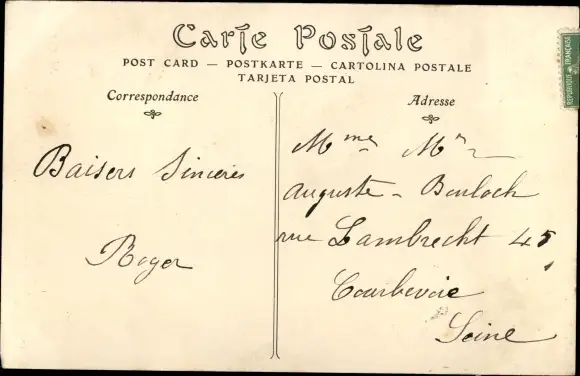 Carte Postale
POST CARD — POSTKARTE — CARTOLINA POSTALE
TARJETA POSTAL
Correspondance
Adresse
Baisers Sincères
Roger
Mme Mr
Auguste - Bouloch
rue Lambrecht 45
Courbevoie
Seine
REPUBLIQUE FRANÇAISE